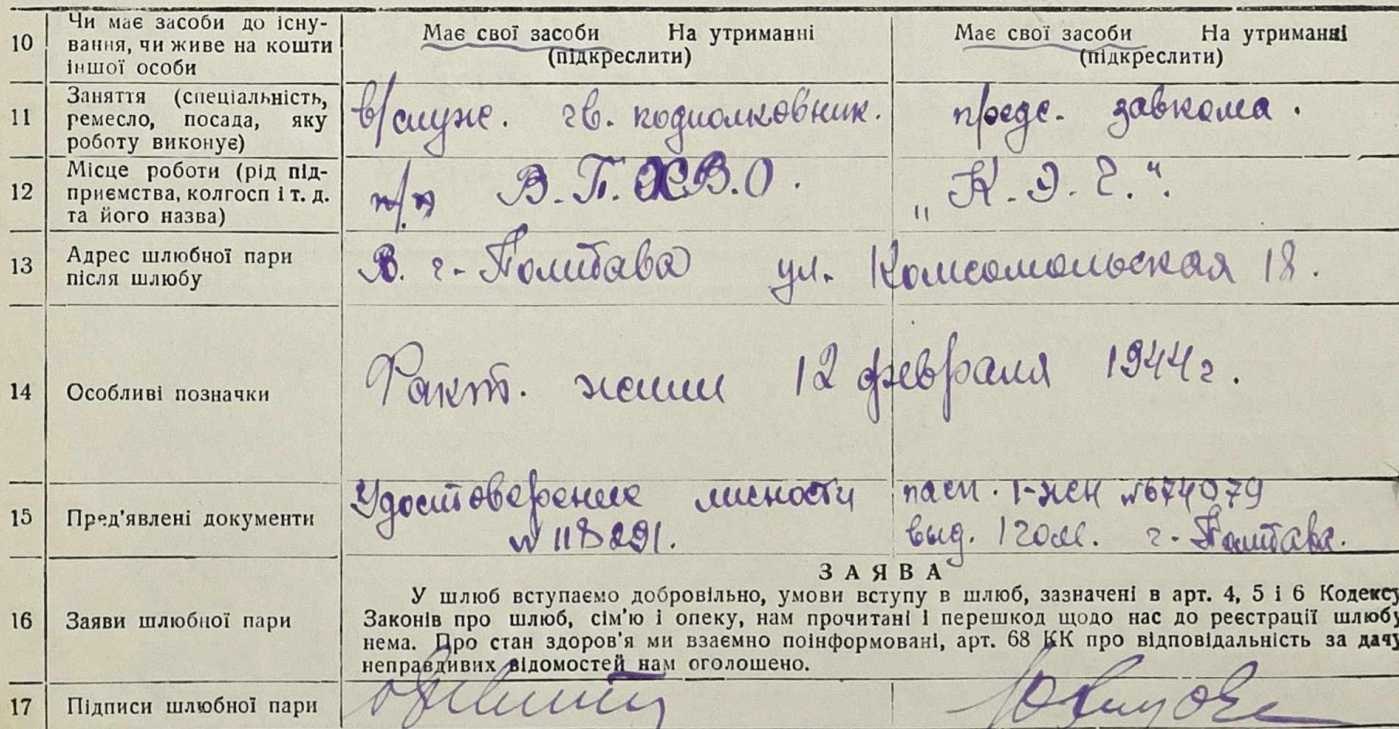 10 Чи має засоби до існу-
вання, чи живе на кошти
іншої особи
Має свої засоби На утриманні
(підкреслити)
Має свої засоби На утриманні
(підкреслити)
11 Заняття (спеціальність,
ремесло, посада, яку
роботу виконує)
в/служ. гв. подполковник.
предс. завкома.
12 Місце роботи (рід під-
приємства, колгосп і т. д.
та його назва)
п/п В.П.ХВ.О.
„К.Э.Ч.“.
13 Адрес шлюбної пари
після шлюбу
В. г. Полтава ул. Комсомольская 18.
14 Особливі позначки
Факт. жили 12 февраля 1944 г.
15 Пред'явлені документи
Удостоверение личности
№ 118291.
пасп. 1-ЖЕН №674079
выд. 1 гом. г. Полтава.
16 Заяви шлюбної пари
ЗАЯВА
У шлюб вступаємо добровільно, умови вступу в шлюб, зазначені в арт. 4, 5 і 6 Кодексу
Законів про шлюб, сім'ю і опеку, нам прочитані і перешкод щодо нас до реєстрації шлюбу
нема. Про стан здоров'я ми взаємно поінформовані, арт. 68 КК про відповідальність за дачу
неправдивих відомостей нам оголошено.
17 Підписи шлюбної пари